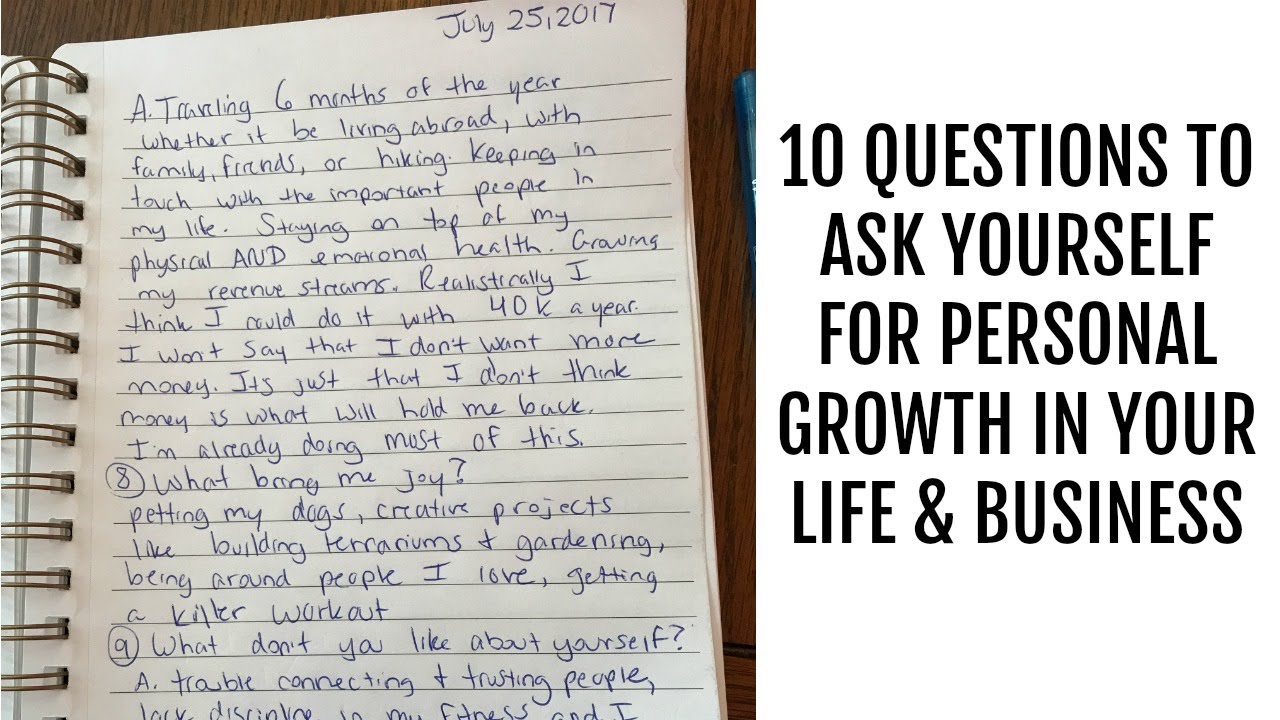 July 25, 2017
A. Traveling 6 months of the year
whether it be living abroad, with
family, friends, or hiking. Keeping in
touch with the important people in
my life. Staying on top of my
physical AND emotional health. Growing
my revenue streams. Realistically I
think I could do it with 40k a year.
I won't say that I don't want more
money. Its just that I don't think
money is what will hold me back.
I'm already doing most of this.
8) What bring me joy?
petting my dogs, creative projects
like building terrariums + gardening,
being around people I love, getting
a killer workout
9) What don't you like about yourself?
A. trouble connecting + trusting people,
lack discipline in my fitness and I
10 QUESTIONS TO
ASK YOURSELF
FOR PERSONAL
GROWTH IN YOUR
LIFE & BUSINESS